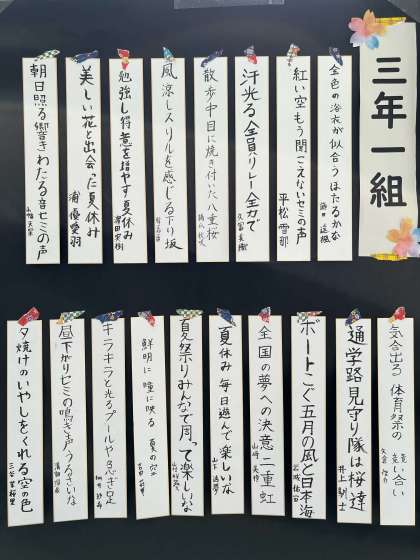 三年一組
金色の浴衣が似合うほたるかな
紅い空もう聞こえないセミの声
平松雪那
汗光る全員リレー全力で
散歩中目に焼き付いた八重桜
風涼しスリルを感じる下り坂
勉強し得意を増やす夏休み
美しい花と出会った夏休み
浦優愛羽
朝日照る響きわたる音セミの声
気合出る体育祭の競い合い
通学路見守り隊は桜達
井上馴士
ボートこぐ五月の風と日本海
全国の夢への決意二重虹
夏休み毎日遊んで楽しいな
夏祭りみんなで周って楽しいな
鮮明に瞳に映る夏の空
キラキラと光るプールや急ぎ足
昼下がりセミの鳴き声うるさいな
夕焼けのいやしをくれる空の色